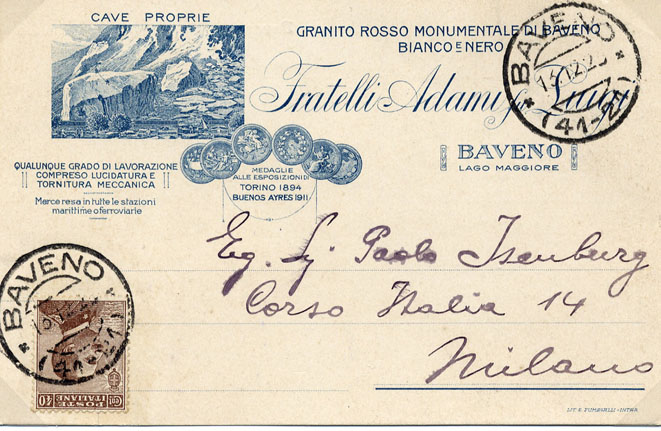 CAVE PROPRIE
GRANITO ROSSO MONUMENTALE DI BAVENO
BIANCO E NERO
Fratelli Adami fu Luigi
BAVENO
LAGO MAGGIORE
QUALUNQUE GRADO DI LAVORAZIONE
COMPRESO LUCIDATURA E
TORNITURA MECCANICA
Merce resa in tutte le stazioni
marittime o ferroviarie
MEDAGLIE
ALLE ESPOSIZIONI DI
TORINO 1894
BUENOS AYRES 1911
BAVENO
(41-2)
Eg. Sig. Paolo Isenburg
Corso Italia 14
Milano
BAVENO
POSTE
ITALIANE
CENT 40
LIT. E. FUMAGALLI - INTRA